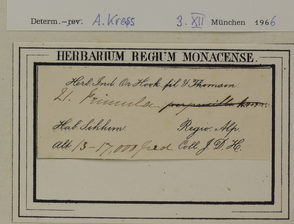 Determ.—rev. A. Kress 3. XII München 1966
HERBARIUM REGIUM MONACENSE.
Herb. Ind. Or. Hook. fil. & Thomson
21. Primula
Hab. Sikkim Regio Alp.
Alt. 13-17,000 ped Coll. J. D. H.